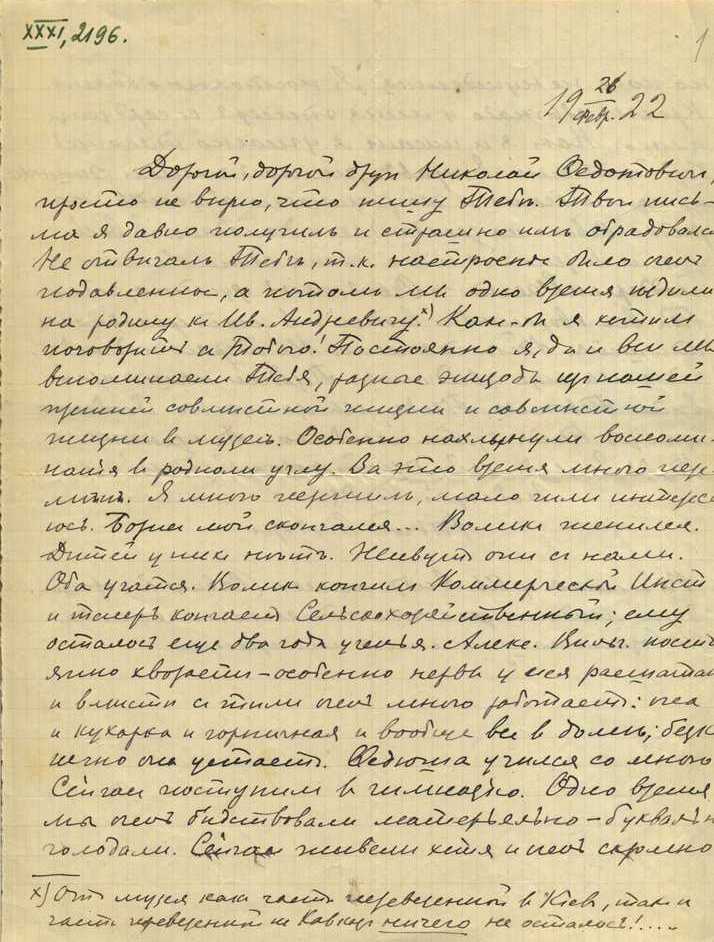 XXXI, 2196.
1
19 26/февр. 22
Дорогой, дорогой друг Николай Федотович,
просто не верю, что пишу Тебѣ. Твои пись-
ма я давно получилъ и страшно имъ обрадовался
Не отвѣчалъ Тебѣ, т.к. настроение было очень
подавленное, а потомъ мы одно время ѣздили
на родину къ Ив. Андреевичу.х) Какъ-бы я хотѣлъ
поговорить съ Тобою! Постоянно я, да и всѣ мы
вспоминаемъ Тебя, разные эпизоды изъ нашей
прежней совмѣстной жизни и совмѣстной
жизни в музеѣ. Особенно нахлынули воспоми-
нания в родномъ углу. За это время много пере
Я много пережилъ, мало чѣмъ интересу
юсь. Боря мой скончался... Волик женился.
Дѣтей у них нѣтъ. Живутъ они съ нами.
Оба учатся. Волик кончилъ Коммерческий Инст
и теперь кончаетъ Сельскохозяйственный; ему
осталось еще два года ученья. Алекс. Вильг. посто
янно хвораетъ - особенно нервы у нея расшатан
и вмѣстѣ съ тѣмъ очень много работаетъ: она
и кухарка и горничная и вообще все в домѣ;
она устаетъ. Федюша учился со мною
Сейчас поступилъ в гимназію. Одно время
мы очень бѣдствовали матерьяльно - буквально
голодали. Сейчас живемъ хотя и очень скромно
х) Отъ музея какъ часть перевезенной в Кіевъ, такъ и
часть перевезенной на Кавказъ ничего не осталось!....